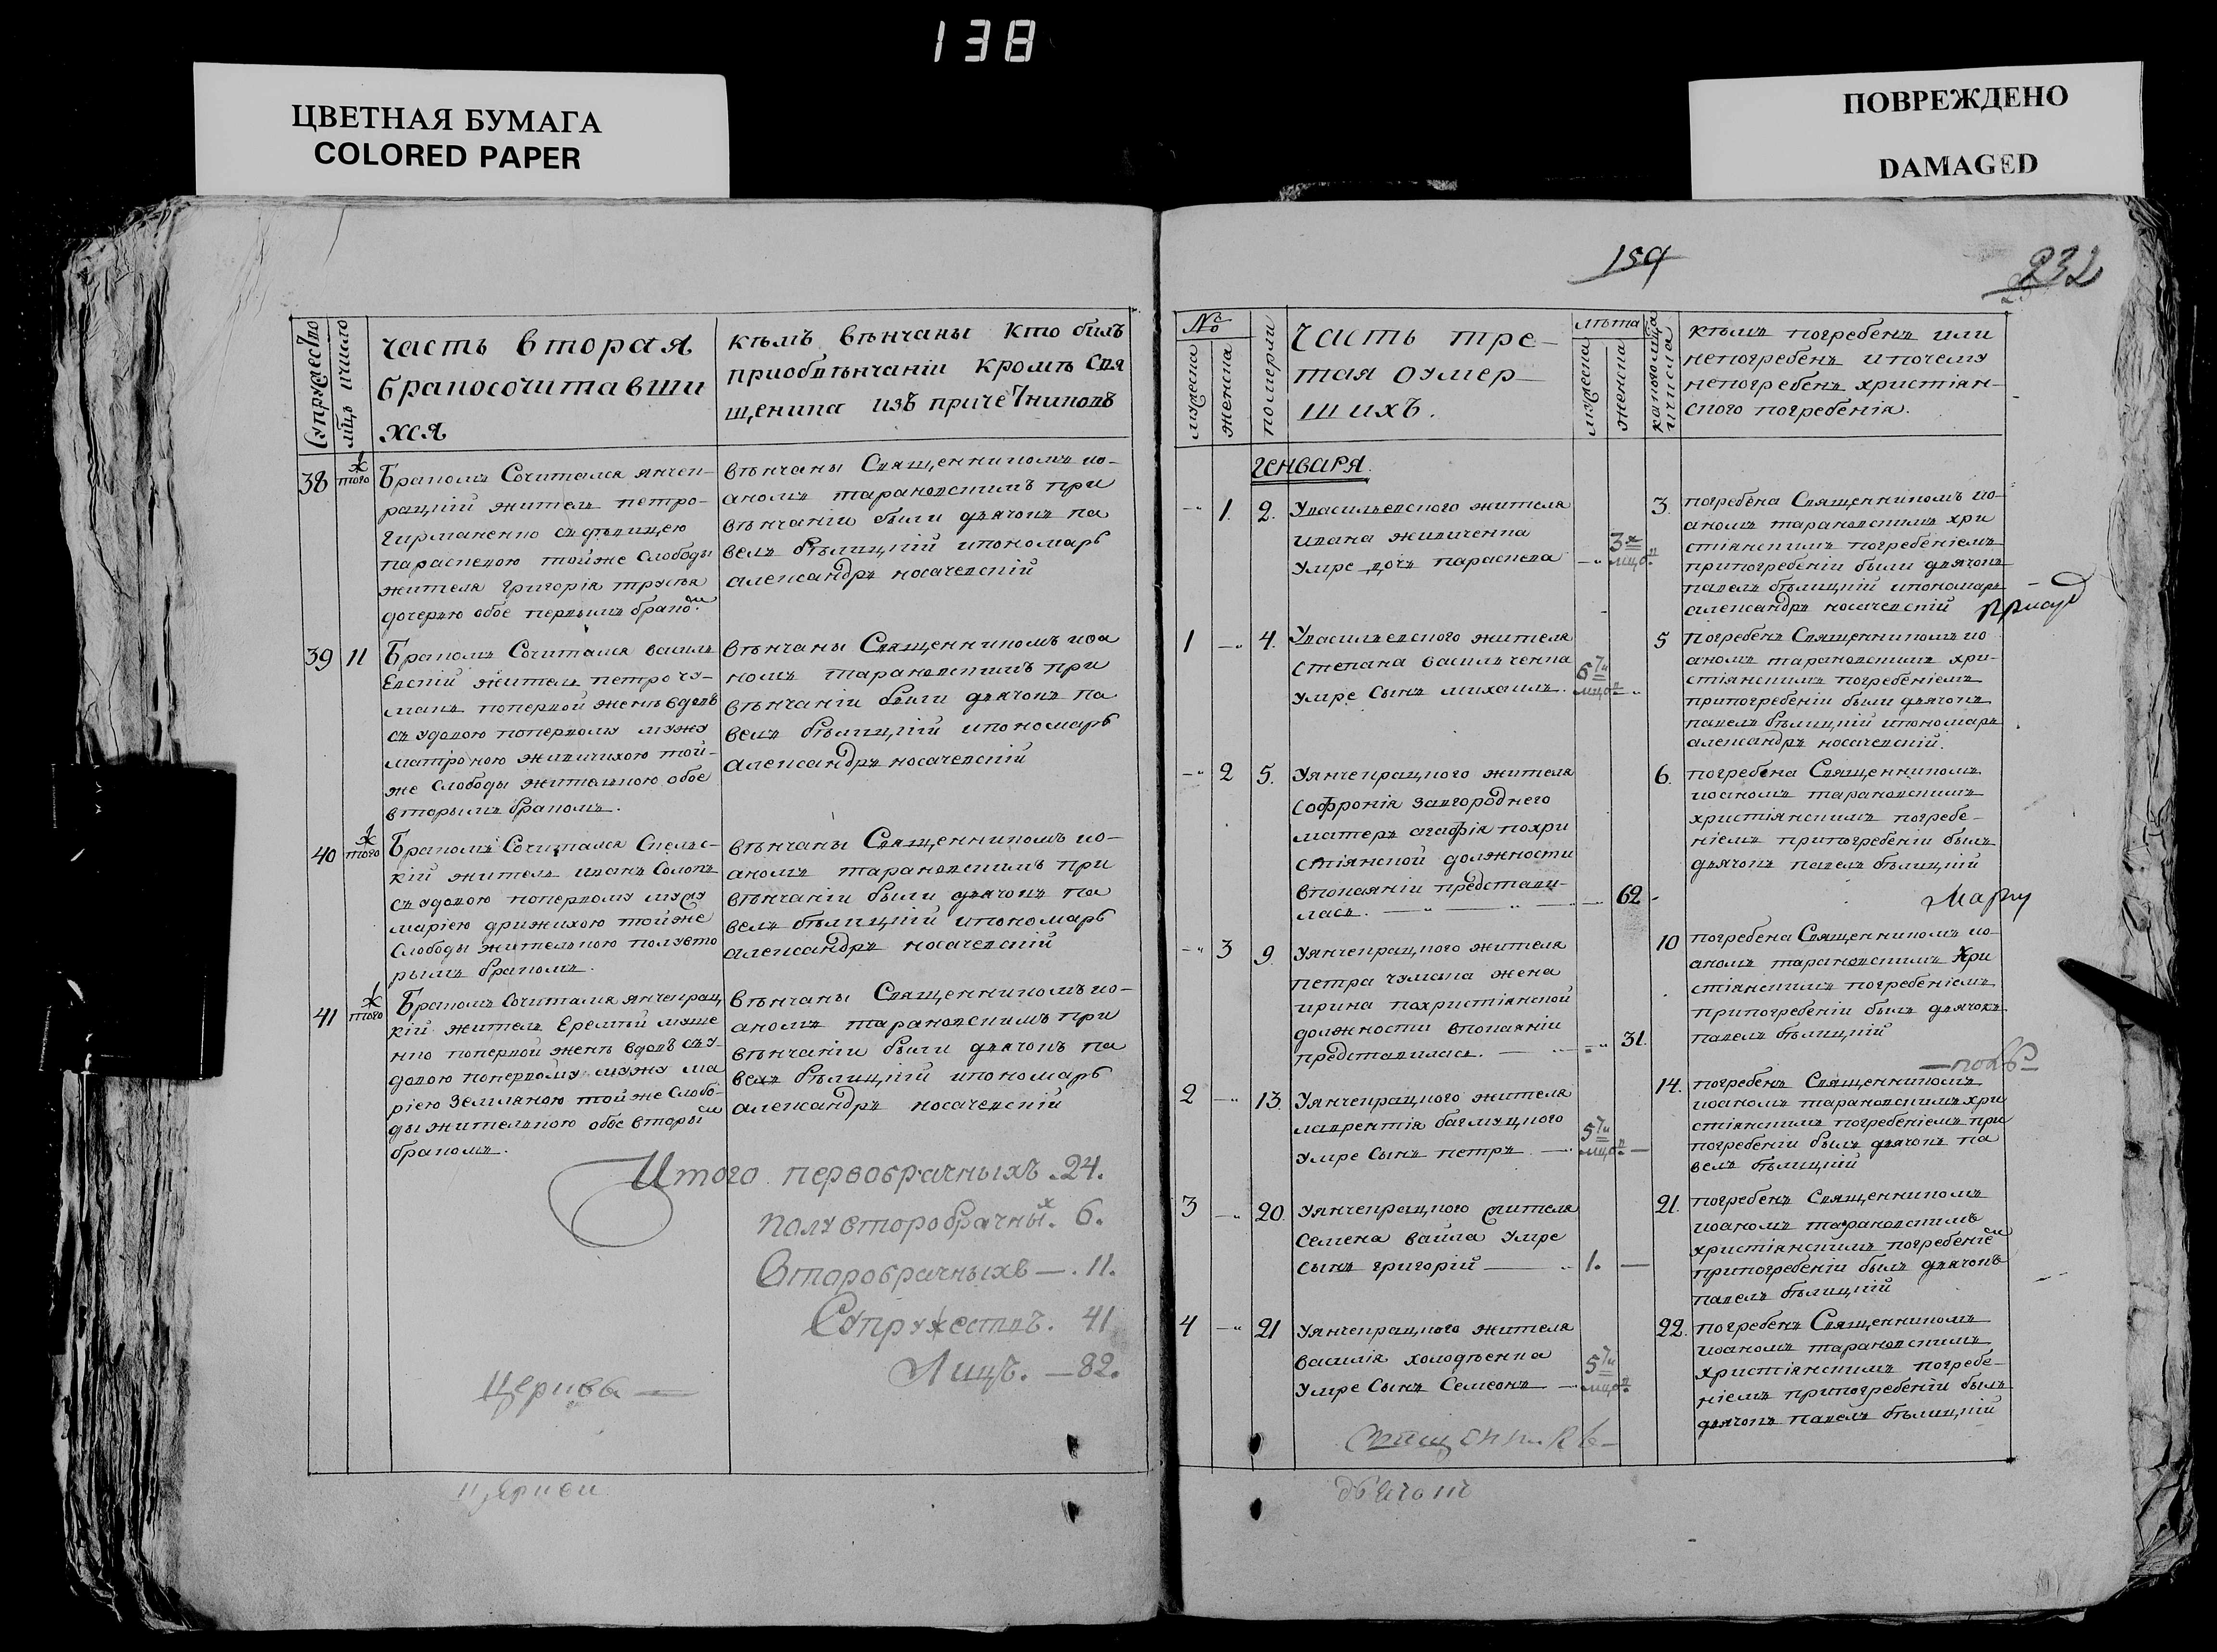 138
ЦВЕТНАЯ БУМАГА
COLORED PAPER
ПОВРЕЖДЕНО
DAMAGED
Супружество
мцъ ичисло
часть вторая
бракосочитавши
хся
кѣмъ вѣнчаны кто билъ
приобвѣнчаніи кромѣ свя
щеника изъ причетниковъ
38
того
Бракомъ Сочитался янчек-
рацкій житель петро-
гирманенко съ дѣвицею
параскевою тойже слободы
жителя григорія трусъа
дочерью обое первымъ брако.мъ
вѣнчаны Священникомъ ио-
аномъ тарановскимъ при
вѣнчаніи были дячокъ па
велъ бѣлицкій ипономарь
александръ носачевскій
39 11
Бракомъ Сочитался василь
Евскій житель петро чу-
макъ попервой женѣ вдовъ
съ удовою попервому мужу
матроною живичихою той-
же слободы жителькою обое
вторымъ бракомъ.
вѣнчаны Священникомъ иоа
номъ тарановскимъ при
вѣнчаніи были дячокъ па
велъ бѣлицкій ипономарь
александръ носачевскій
40
того
Бракомъ Сочитался Спельс-
кій житель иванъ Солопъ
съ удовою попервому мужу
маріею дрижихою тойже
Слободы жителькою полувто
рымъ бракомъ.
вѣнчаны Священникомъ ио-
аномъ тарановскимъ при
вѣнчаніи были дячокъ па
велъ бѣлицкій ипономарь
александръ носачевскій
41
того
Бракомъ Сочитался янчекрац
кій житель Еремѣй маше
нко попервой женѣ вдовъ съу-
довою попервому мужу ма
ріею Земляною тойже Слобо-
ды жителькою обое вторымъ
бракомъ.
вѣнчаны Священникомъ ио-
аномъ тарановскимъ при
вѣнчаніи были дячокъ па
велъ бѣлицкій ипономарь
александръ носачевскій
Итого первобрачныхъ .24.
полувторобрачныхъ. 6.
Второбрачныхъ —. 11.
Супружествъ. 41
Лицъ. — 82.
Церкви —
Церкви
159
232
№
мужеска
женска
померли
Часть тре-
тая оумер-
шихъ.
лѣта
мужеска
женска
какого мца
ичисла
кѣмъ погребенъ или
непогребенъ ипочему
непогребенъ христіан-
ского погребенія.
генваря.
1. 2.
Увасильевского жителя
ивана живиченка
умре дочь параскева
3х
мцов
3.
погребена Священникомъ ио-
аномъ тарановскимъ хри
стіянскимъ погребеніемъ
припогребеніи были дячокъ
павелъ бѣлицкій ипономарь
александръ носачевскій
1 4.
Увасильевского жителя
Степана василъченка
умре Сынъ михаилъ.
6ти
мцов
5
погребенъ Священникомъ ио
аномъ тарановскимъ хри-
стіянскимъ погребеніемъ
припогребеніи были дячокъ
павелъ бѣлицкій ипономарь
александръ носачевскій.
2 5.
Уянчекрацкого жителя
Софронія Завгороднего
матерь агафія похри
стіянской должности
впокаяніи представи-
лась. 62
6.
погребена Священникомъ
иоаномъ тарановскимъ
христіянскимъ погребе-
ніемъ припогребеніи былъ
дячокъ павелъ бѣлицкій
3 9
Уянчекрацкого жителя
петра чумака жена
ирина похристіянской
должности впокаяніи
представилась. 31.
10
погребена Священникомъ ио-
аномъ тарановскимъ Хри
стіянскимъ погребеніемъ
припогребеніи былъ дячокъ
павелъ бѣлицкій
2 13.
Уянчекрацкого жителя
лаврентія багмуцкого
умре Сынъ петръ
5ти
мцов
14.
погребенъ Священникомъ
иоаномъ тарановскимъ хри
стіянскимъ погребеніемъ при
погребеніи былъ дячокъ па
велъ бѣлицкій
3 20.
Уянчекрацкого жителя
Семена ваила Умре
сынъ григорій 1.
21.
погребенъ Священникомъ
иоаномъ тарановскимъ
христіянскимъ погребеніемъ
припогребеніи былъ дячокъ
павелъ бѣлицкій
4 21
Уянчекрацкого жителя
василія холодѣенка
умре Сынъ Семеонъ
5ти
мцов
22.
погребенъ Священникомъ
иоаномъ тарановскимъ
христіянскимъ погребе-
ніемъ припогребеніи былъ
дячокъ павелъ бѣлицкій